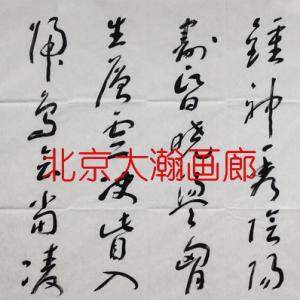 鍾神秀陰陽
割昏曉盪胸
生層雲決眥入
歸鳥會當凌
北京大瀚画廊